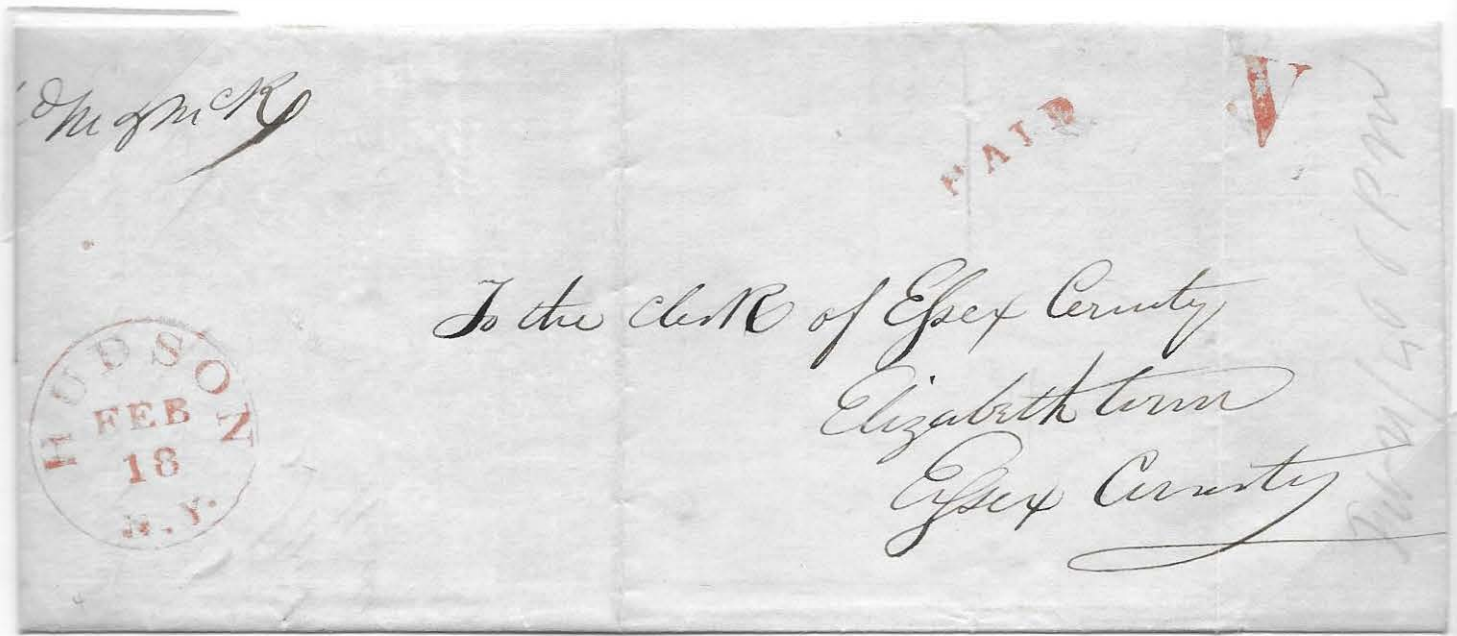 M & McK
PAID
V
To the clerk of Essex County
Elizabethtown
Essex County
HUDSON
FEB
18
N.Y.